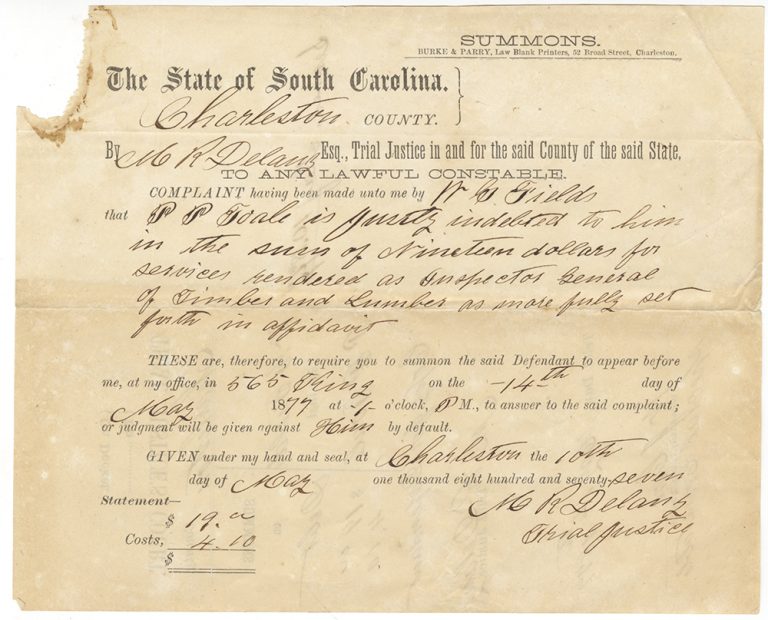 SUMMONS.
BURKE & PARRY, Law Blank Printers, 52 Broad Street, Charleston.
The State of South Carolina.
Charleston COUNTY.
By M R Delany Esq., Trial Justice in and for the said County of the said State,
TO ANY LAWFUL CONSTABLE.
COMPLAINT having been made unto me by W G Fields
that P P Toale is justly indebted to him
in the sum of Nineteen dollars for
services rendered as Inspector General
of Timber and Lumber as more fully set
forth in affidavit
THESE are, therefore, to require you to summon the said Defendant to appear before
me, at my office, in 565 King on the -14th day of
May 1877 at -1- o'clock, P M., to answer to the said complaint;
or judgment will be given against Him by default.
GIVEN under my hand and seal, at Charleston the 10th
day of May one thousand eight hundred and seventy-seven
Statement—
M R Delany
$ 19.
Trial Justice
Costs, 4.10
$